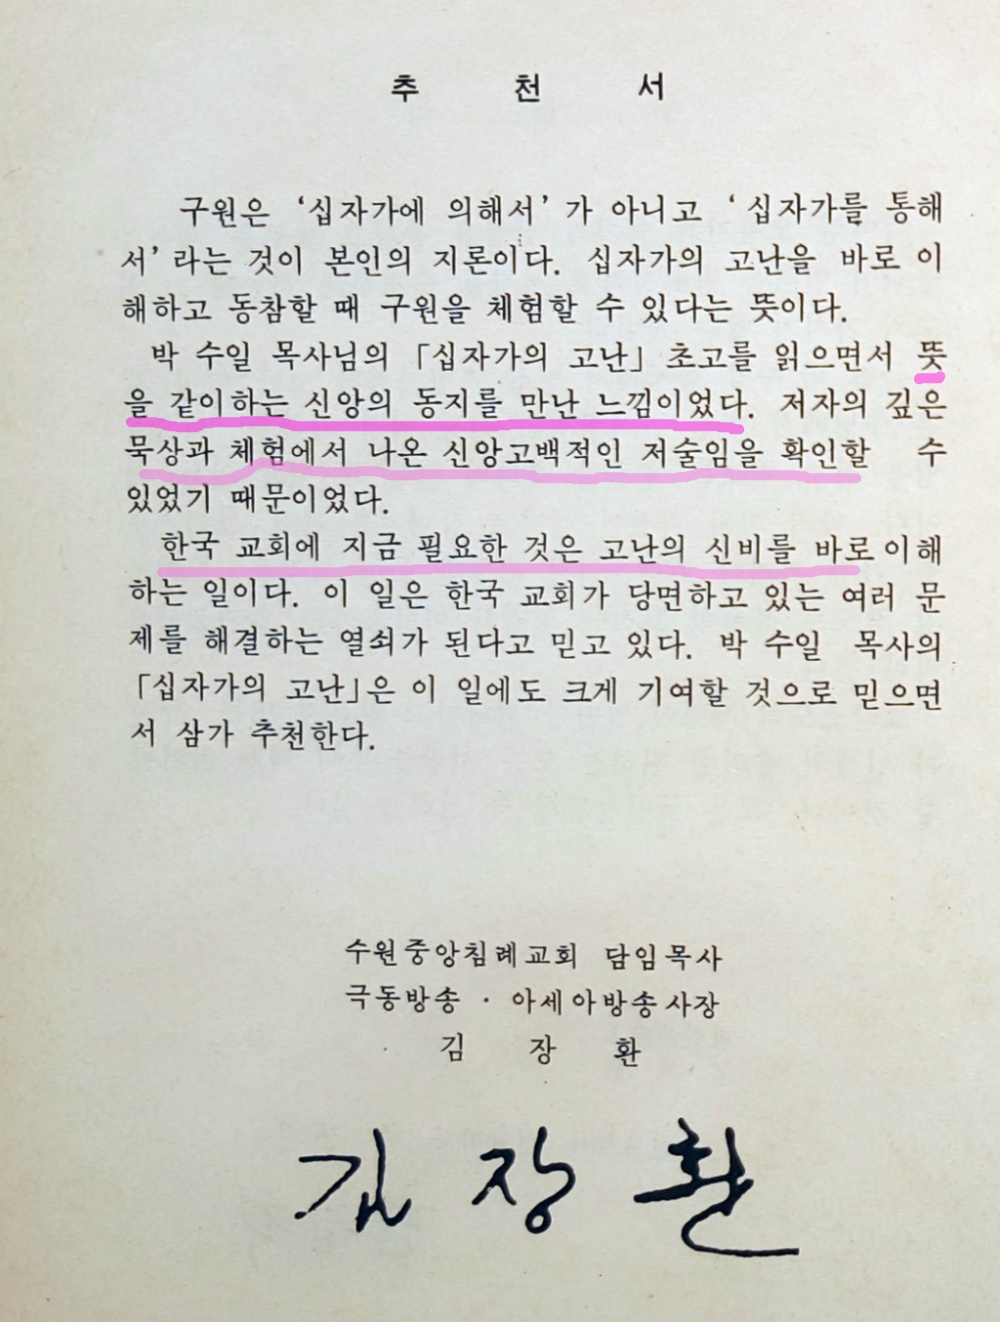 추 천 서
구원은 ‘십자가에 의해서’ 가 아니고 ‘십자가를 통해
서’ 라는 것이 본인의 지론이다. 십자가의 고난을 바로 이
해하고 동참할 때 구원을 체험할 수 있다는 뜻이다.
박 수일 목사님의 「십자가의 고난」 초고를 읽으면서 뜻
을 같이하는 신앙의 동지를 만난 느낌이었다. 저자의 깊은
묵상과 체험에서 나온 신앙고백적인 저술임을 확인할 수
있었기 때문이었다.
한국 교회에 지금 필요한 것은 고난의 신비를 바로 이해
하는 일이다. 이 일은 한국 교회가 당면하고 있는 여러 문
제를 해결하는 열쇠가 된다고 믿고 있다. 박 수일 목사의
「십자가의 고난」은 이 일에도 크게 기여할 것으로 믿으면
서 삼가 추천한다.
수원중앙침례교회 담임목사
극동방송 · 아세아방송사장
김 장 환
김 장 환